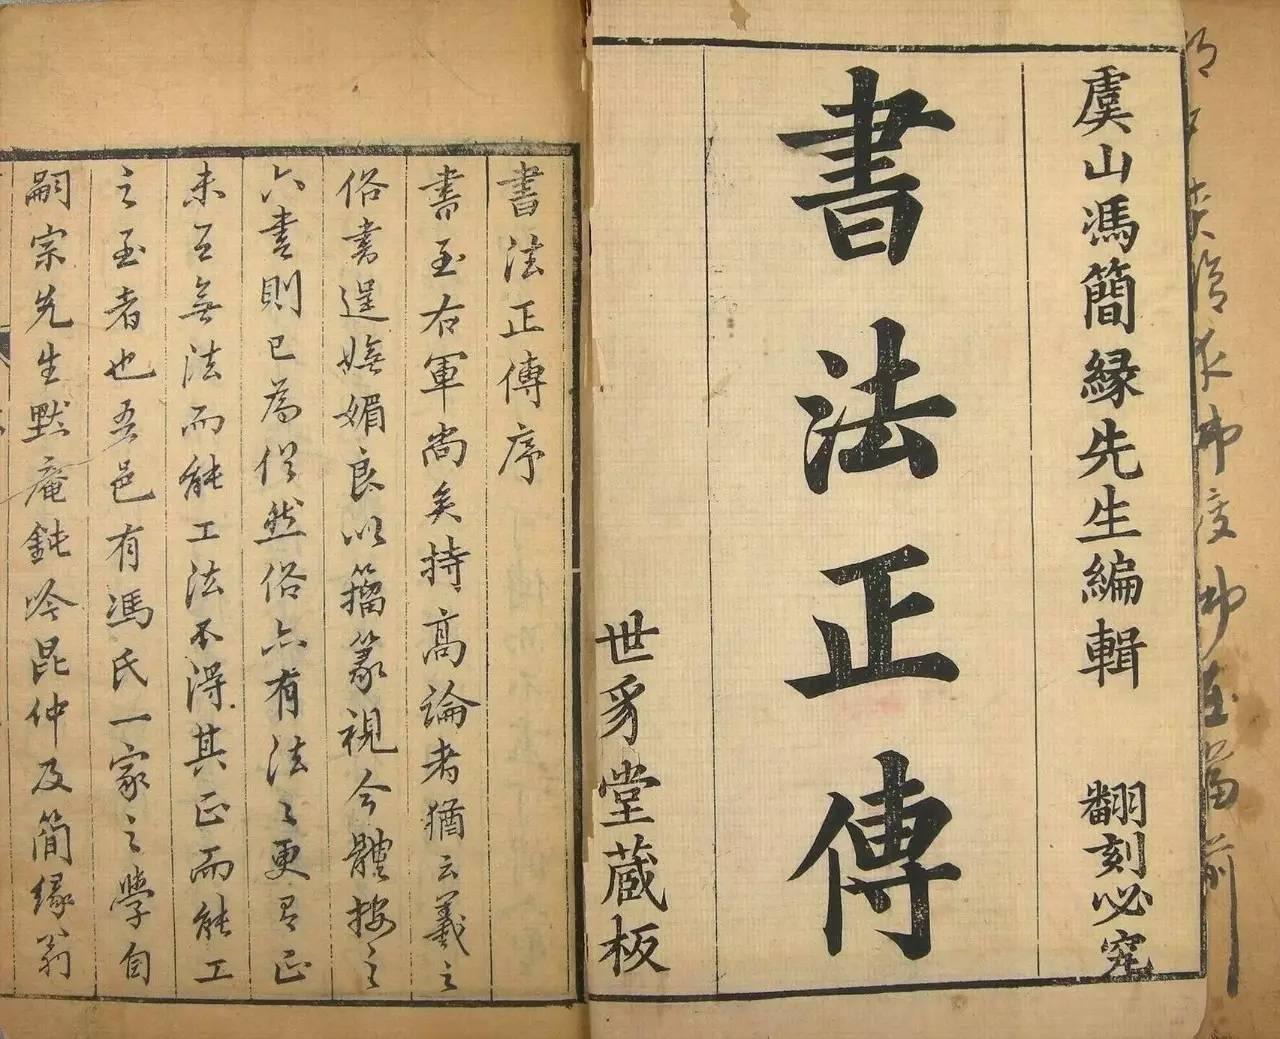 虞山馮簡縁先生編輯 翻刻必究
書法正傳
世豸堂蔵板
書法正傳序
書至右軍尚矣持高論者猶云羲之
俗書逞嫵媚良以籀篆視今體按之
六書則已為俗然俗亦有法〻更有正
未有無法而能工法不得其正而能工
之至者也吾邑有馮氏一家之學自
嗣宗先生默庵鈍吟昆仲及簡縁翁